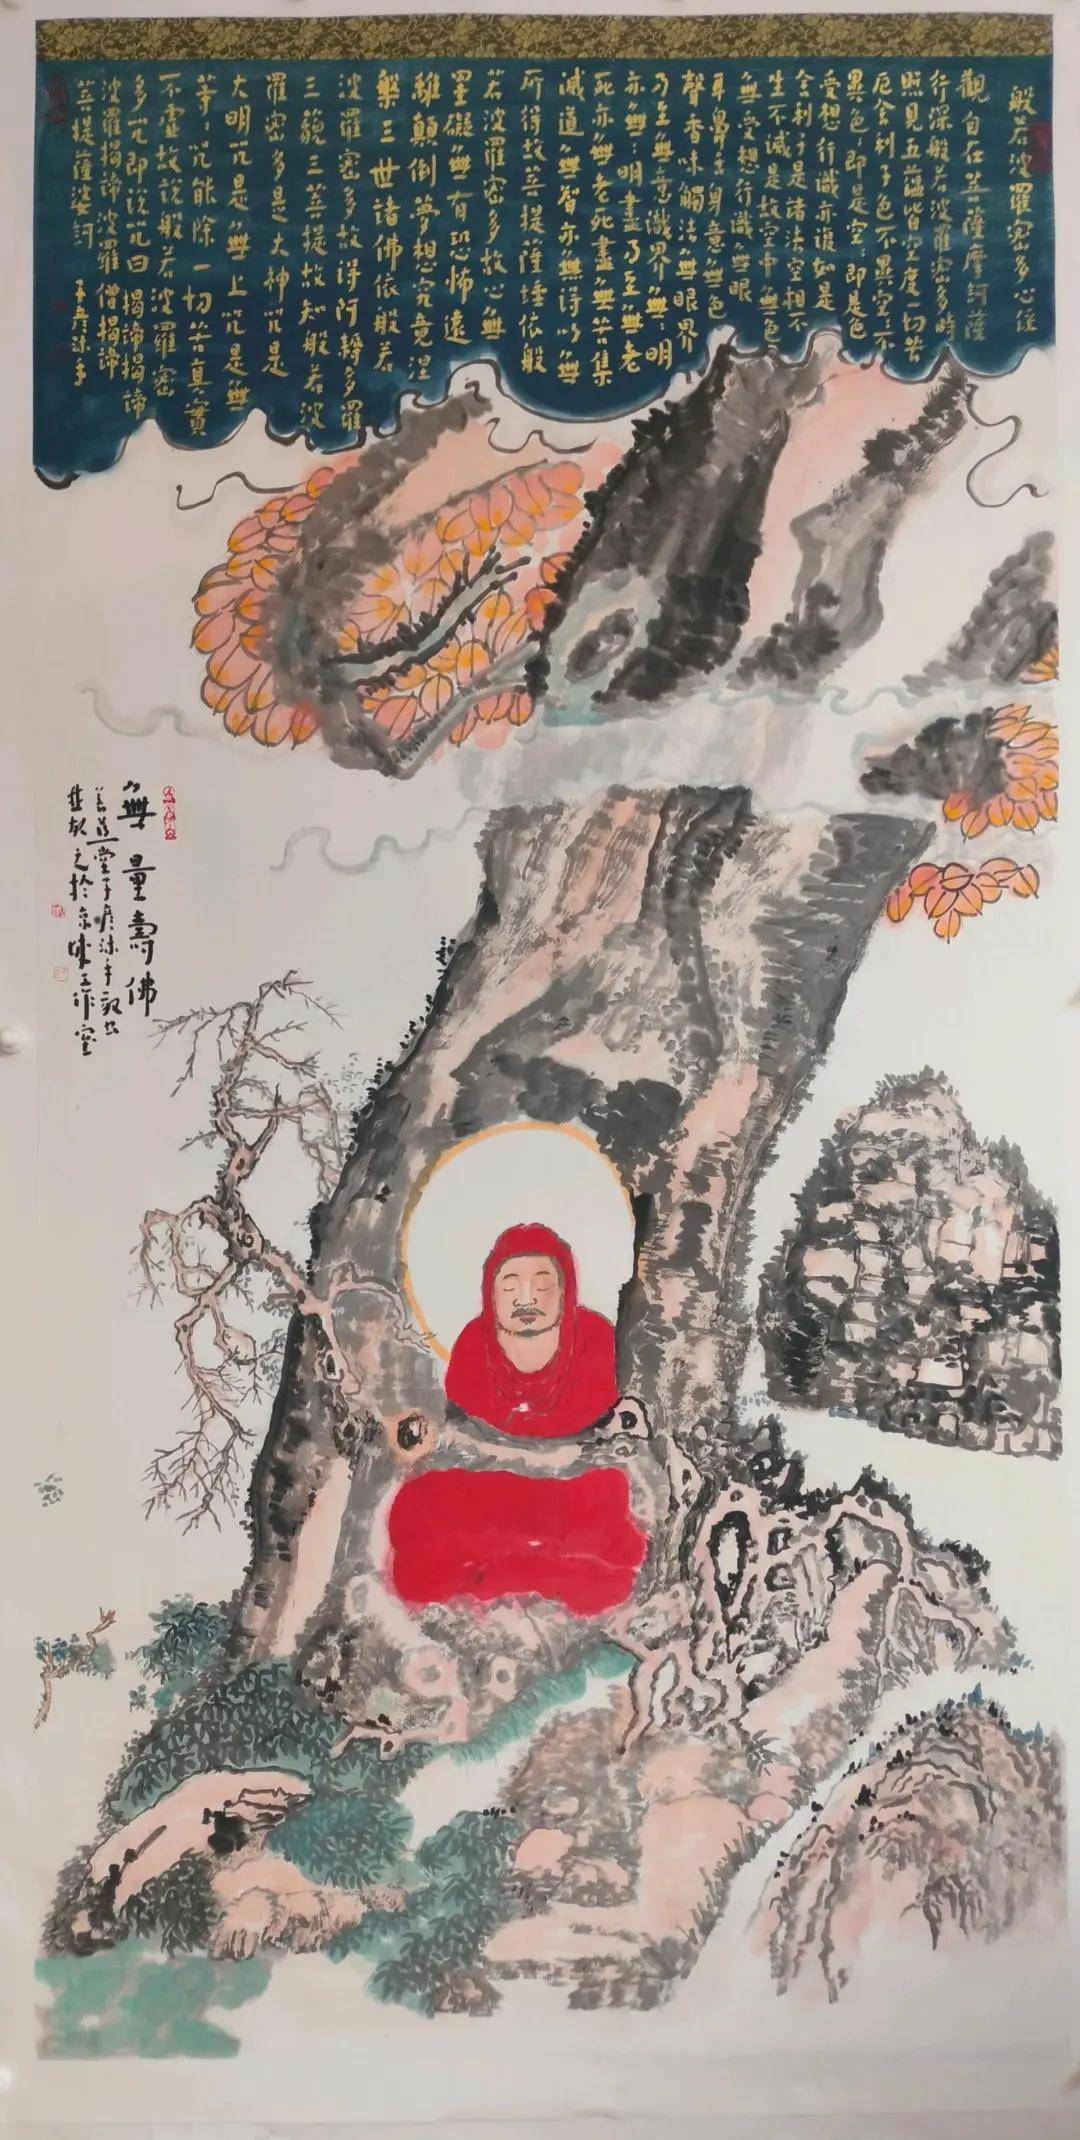 般若波羅密多心经
觀自在菩薩摩訶薩
行深般若波羅密多時
照見五蘊皆空度一切苦
厄舍利子色不異空:不
異色:即是空:即是色
受想行識亦復如是
舍利子是諸法空相不
生不滅是故空中無色
無受想行識無眼
耳鼻舌身意無色
聲香味觸法無眼界
乃至無意識界無:明
亦無:明盡乃至無老
死亦無老死盡無苦集
滅道無智亦無得以無
所得故菩提薩埵依般
若波羅密多故心無
罣礙無有恐怖遠
離顛倒夢想究竟涅
槃三世諸佛依般若
波羅密多故得阿耨多羅
三藐三菩提故知般若波
羅密多是大神咒是
大明咒是無上咒是無
等:咒能除一切苦真實
不虛故說般若波羅密
多咒即說咒曰揭諦揭諦
波羅揭諦波羅僧揭諦
菩提薩婆訶 子彦沐手
無量壽佛
善莲堂子彦沐手敬书
之於京城工作室